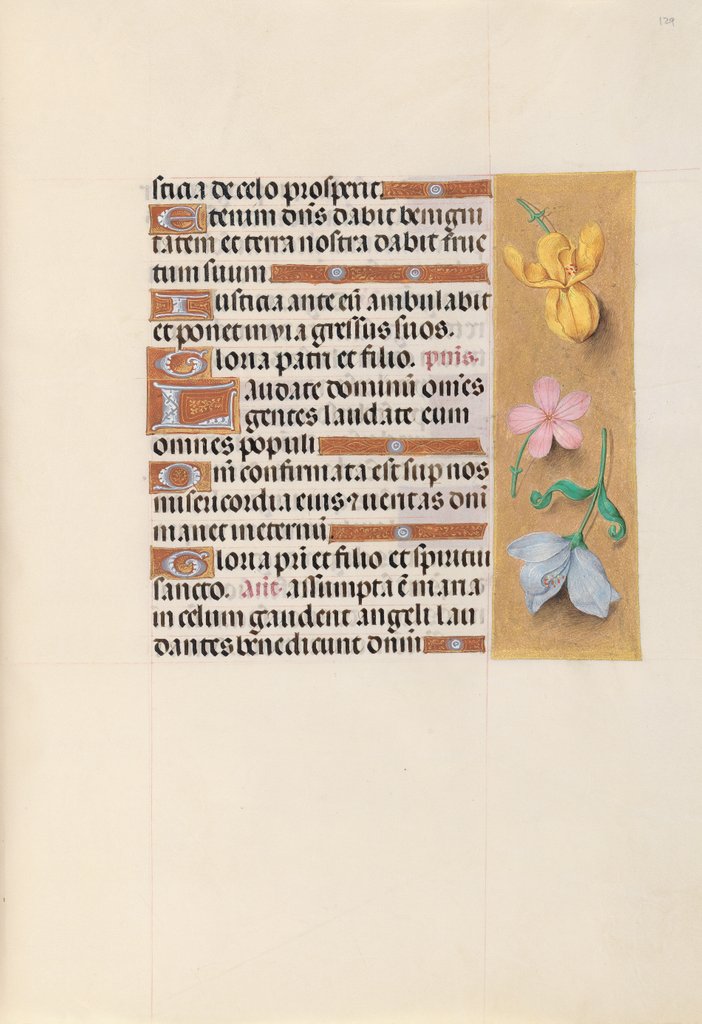 129
sticia de celo prosperit.
Etenim dn̄s dabit benigni
tatem et terra nostra dabit fruc
tum suum
Iusticia ante eū ambulabit
et ponet in via gressus suos.
Gloria patri et filio. p̄nis.
Laudate dominū om̄es
gentes laudate eum
omnes populi
Qm̄ confirmata est sup nos
misericordia eius ⁊ ueritas dn̄i
manet ineternū
Gloria pr̄i et filio et spiritui
sancto. An̄t. assumpta ē maria
in celum gaudent angeli lau
dantes benedicunt dn̄m